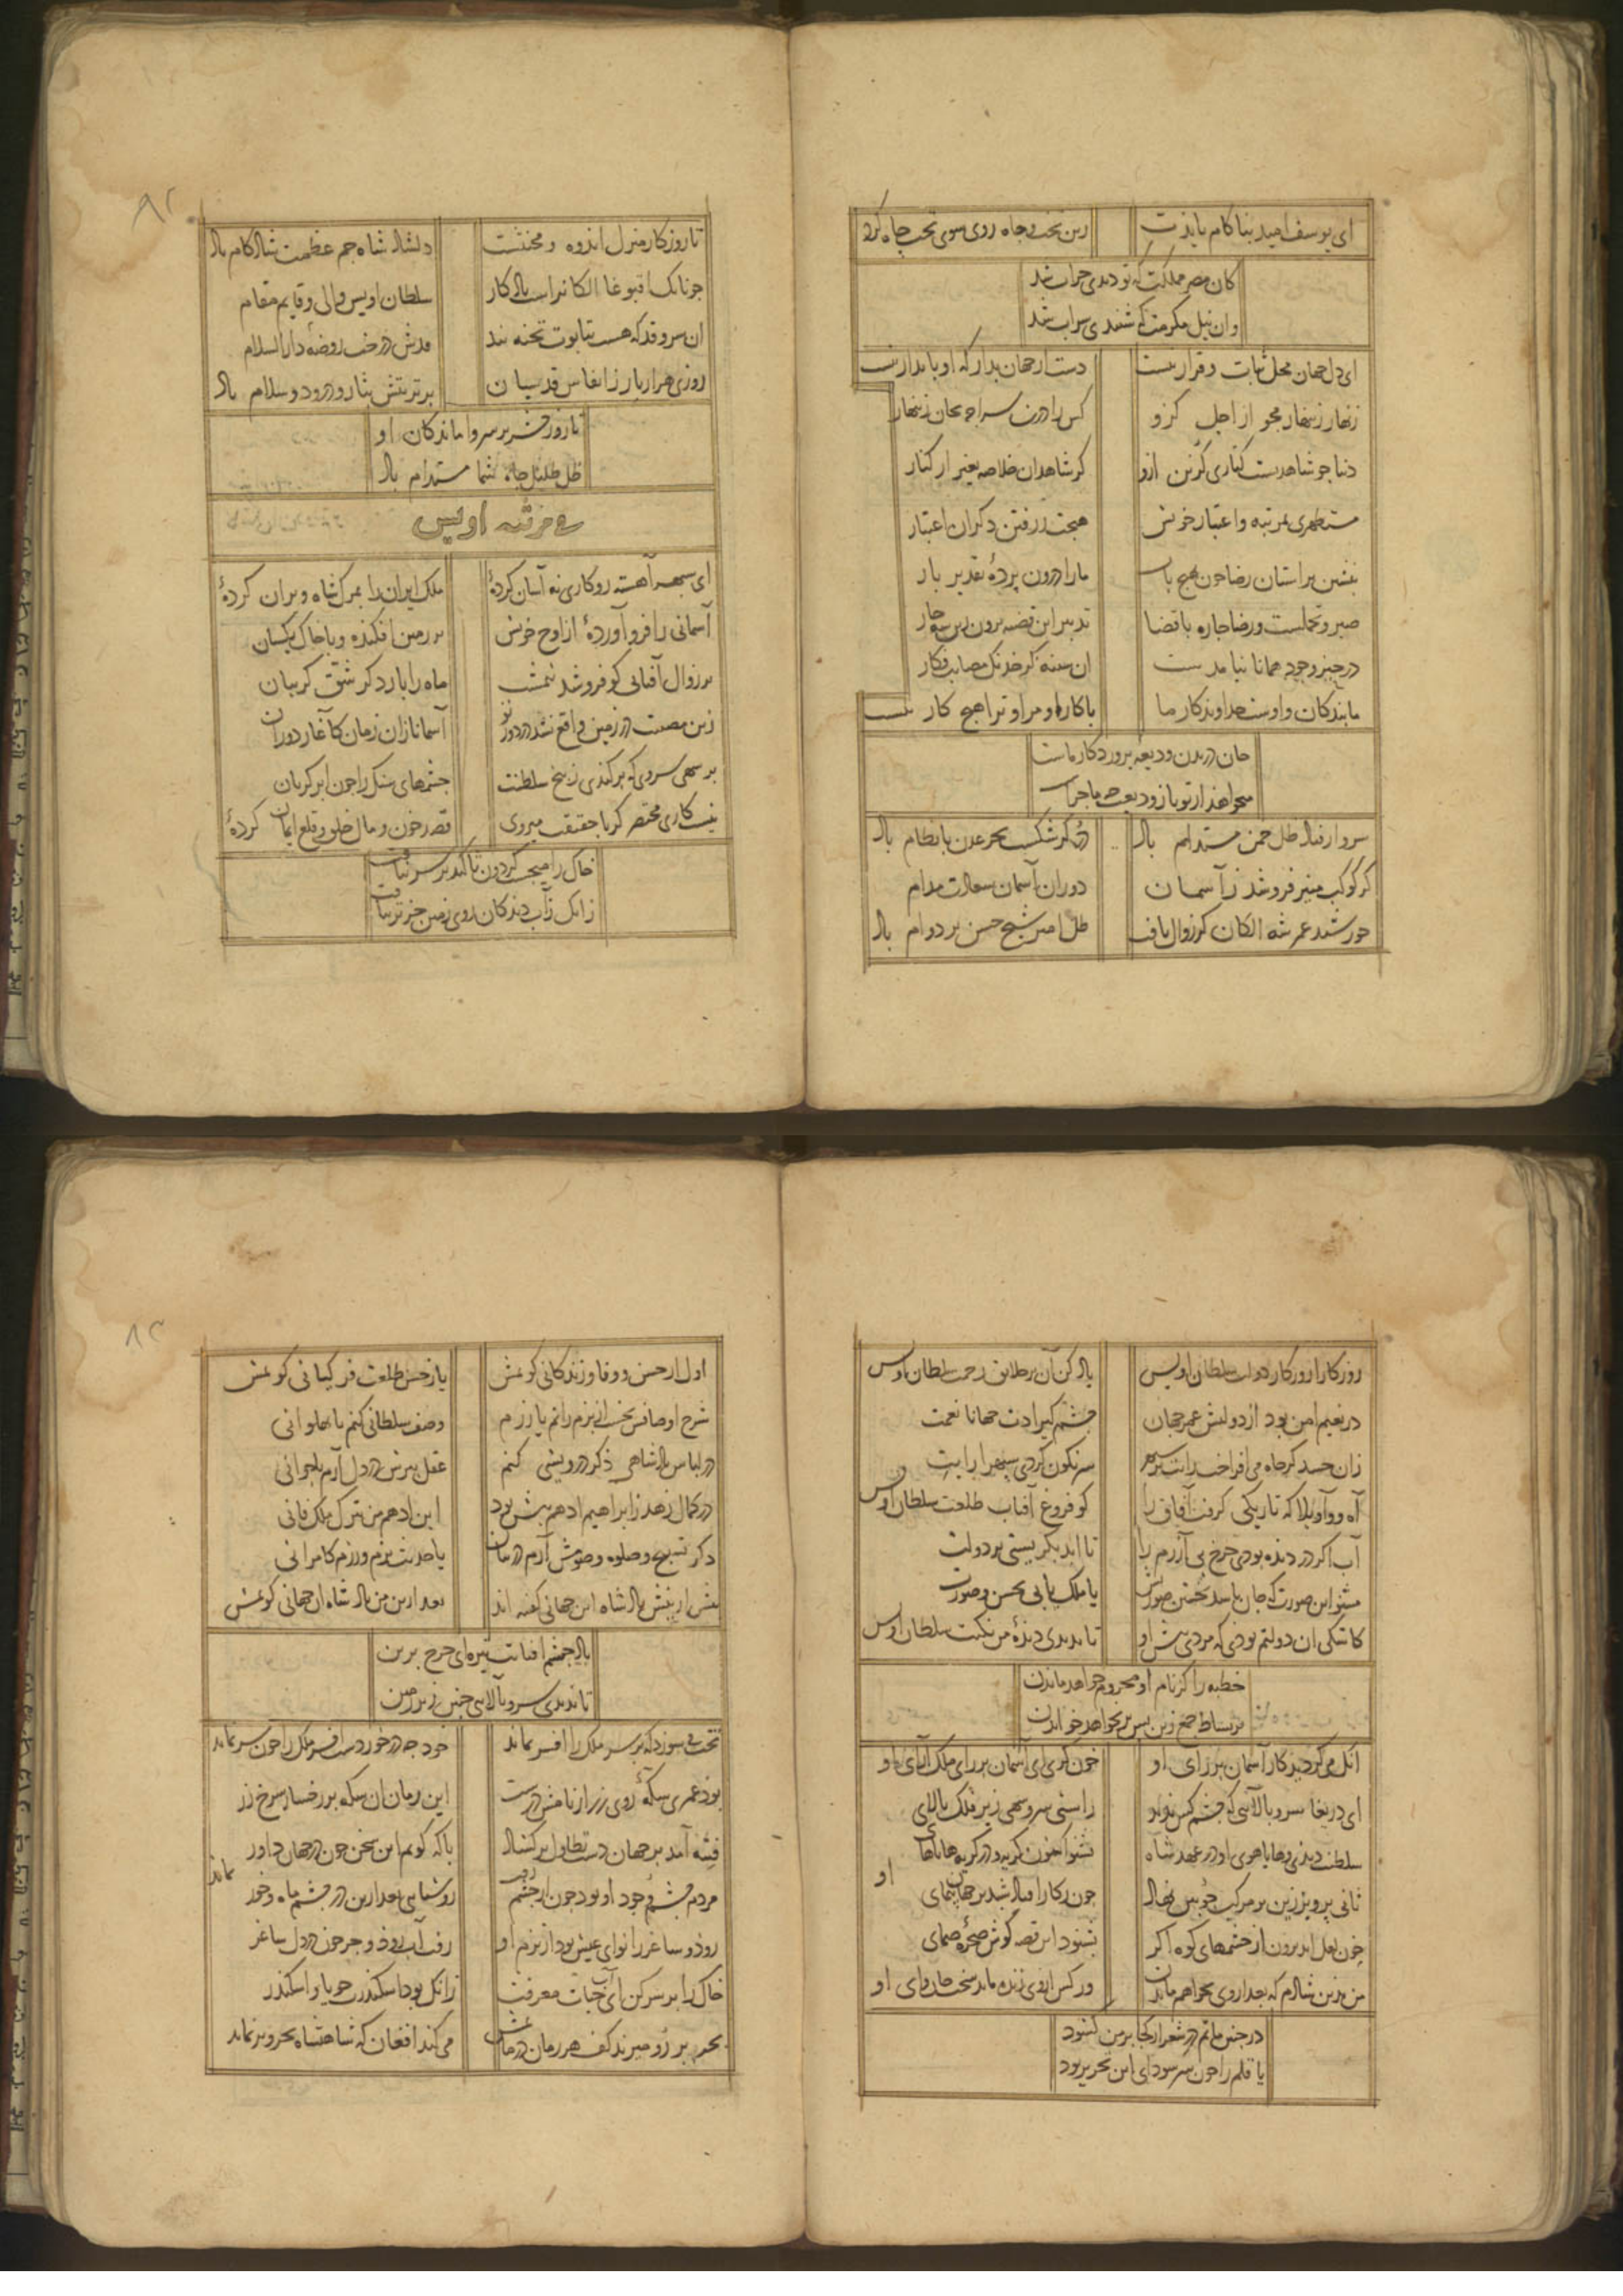 ای یوسف امید بناکام باید ت
زین تخت و جاه روی سوی تخت چاه کرد
کان مصر مملکت که تو دیدی خراب شد
وان نیل مکرمت که شنیدی سراب شد
ای دل جهان محل ثبات و قرار نیست
دست از جهان بدار که او پایدار نیست
زنهار زینهار مجو از اجل کزو
کس را درین سراچه بجان زینهار
دنیا چو شاهدیست کناری گزین ازو
کز شاهدان خلاصه بغیر از کنار
مستظهری بمرتبه و اعتبار خویش
هیچت ز رفتن دکران اعتبار
بنشین بر آستان رضا چون بهیچ باب
ما را درون پردهٔ تقدیر بار
صبر و تحملست و رضا چاره با قضا
تدبیر این قضیه برون زین سه چار
در حیز وجود همانا نیامدست
آن سینه کز خدنک مصایب فکار
ما بندکان و اوست خداوندکار ما
با کار او مرا و ترا هیچ کار نیست
جان در بدن ودیعه پروردکار ماست
میخواهد از تو باز ودیعت چه ماجراست
سرو ار فتاد ظل چمن مستدام باد
در گر شکست بحر عدن با نظام باد
گر کوکب منیر فرو شد ز آسمان
دوران آسمان سعادت مدام
خورشید عمر شه الکان گر زوال یافت
ظل امیر شیخ حسن بر دوام باد
تا روزکار منزل اندوه و محنتست
دلشاد شاه جم عظمت شادکام باد
چونانک اقبوغا الکانراست یادکار
سلطان اویس والی و قایم مقام
ان سرو قد که هست بتابوت تخته بند
قدش درخت روضهٔ دار السلام
روزی هزار بار ز انفاس قدسیان
بر تربتش نثار درود و سلام باد
تا روز حشر بر سر واماندکان او
ظل ظلیل جاه شما مستدام باد
فی مرثیه اویس
ای سپهر آهسته رو کاری نه آسان کردهٔ
ملک ایران را بمرک شاه ویران کردهٔ
آسمانی را فرو آوردهٔ از اوج خویش
بر زمین افکنده و با خاک یکسان
بر زوال آفتابی کو فرو شد نیمشب
ماه را بار دکر شق گریبان
زین مصیبت در زمین واقع نشد در دور تو
آسمانا زان زمان کاغاز دوران
بر سهی سروی که برکندی ز بیخ سلطنت
چشمهای سنک را چون ابر گریان
نیست کاری مختصر کر با حقیقت میروی
قصد خون و مال خلق و قلع ایمان کردهٔ
خاک را میجست گردون تا کند بر سر نیافت
زانک زآب دیدکان روی زمین جز تر نیافت
روزکارا روزکار دولت سلطان اویس
یاد کن آن بر خلایق رحمت سلطان اویس
در نعیم امن بود از دولتش عمر جهان
چشم گیرادت جهانا نعمت
زان حسد کز جاه می افراخت رایت بر سپهر
سرنکون کردی سپهرا رایت
آه و واویلا که تاریکی گرفت آفاق را
کو فروغ آفتاب طلعت سلطان اویس
آب اگر در دیده بودی چرخ بی آزرم را
تا ابد بگریستی بر دولت
مشنو این صورت که جان باسد بحسن صورتش
یا ملک یابی بحسن و صورت
کاشکی ان دولتم بودی که مردی پیش او
تا ندیدی دیدهٔ من نکبت سلطان اویس
خطبه را کز نام او محروم خواهد ماندن
بر بساط جمع زین پس بر نخواهد خواندن
آنک می گردید کار آسمان بر رای او
خون گری ای آسمان بر رای ملک آرای او
ای دریغا سرو بالائی که چشم کس ندید
راستی سرو سهی زیر فلک بالای
سلطنت دیدی و هایاهوی او در عهد شاه
بشنو اکنون گریه و در گریه هایاهای
ثانی پرویز زین بر مرکب چوبین نهاد
چون رکار افتاد شبدیز جهان پیمای او
خون لعل آید برون از چشمهای کوه اگر
بشنود این قصه گوش صخرهٔ صمای
من بدین شادم که بعد از وی نخواهم ماندن
ور کس از وی زنده ماند سخت جان وای او
در چنین ماتم در شعر از کجا بر من گشود
یا قلم را چون سر سودای این تحریر بود
اول از حسن و وفا و زندکانی گویمش
یا ز حسن طلعت و فر کیانی گویمش
شرح اوصافش نخست از بزم رانم یا ز رزم
وصف سلطانی کنم یا پهلوانی
در لباس پادشاهی ذکر درویشی کنم
عقل پیرش در دل آرم یا جوانی
در کمال زهد ز ابراهیم ادهم بیش بود
ابن ادهم من بترک ملک فانی
ذکر تسبیح و صلوه و صومش آرم در میان
یا حدیث بزم و رزم کامرانی
پیش ازینش پادشاه این جهانی گفته اند
بعد ازین من پادشاه آن جهانی گویمش
باد چشم آفتابت تیره ای چرخ برین
تا ندیدی سرو بالایی چنین زیر زمین
تخت می سوزد که بر سر ملک را افسر نماند
خود چه در خوردست افسر ملک را چون سر نماند
بود عمری سکه روی زر از نامش درست
این زمان ان سکه بر رخسار سرخ زر
فتنه آمد بر جهان دست تطاول بر گشاد
با که گویم این سخن چون در جهان داور نماند
مردم چشم وجود او بود چون او رفت
روشنایی بعد ازین در چشم ماه و خور
رود و ساغر را نوای عیش بود از بزم او
رفت آب رود و جز خون در دل ساغر
خاک را بر سر کن ای آب حیات معرفت
زانک بود اسکندرت جویا و اسکندر
بحر بر رو میزند کف هر زمان در ماتمش
می کند افغان که شاهنشاه بحر و بر نماند